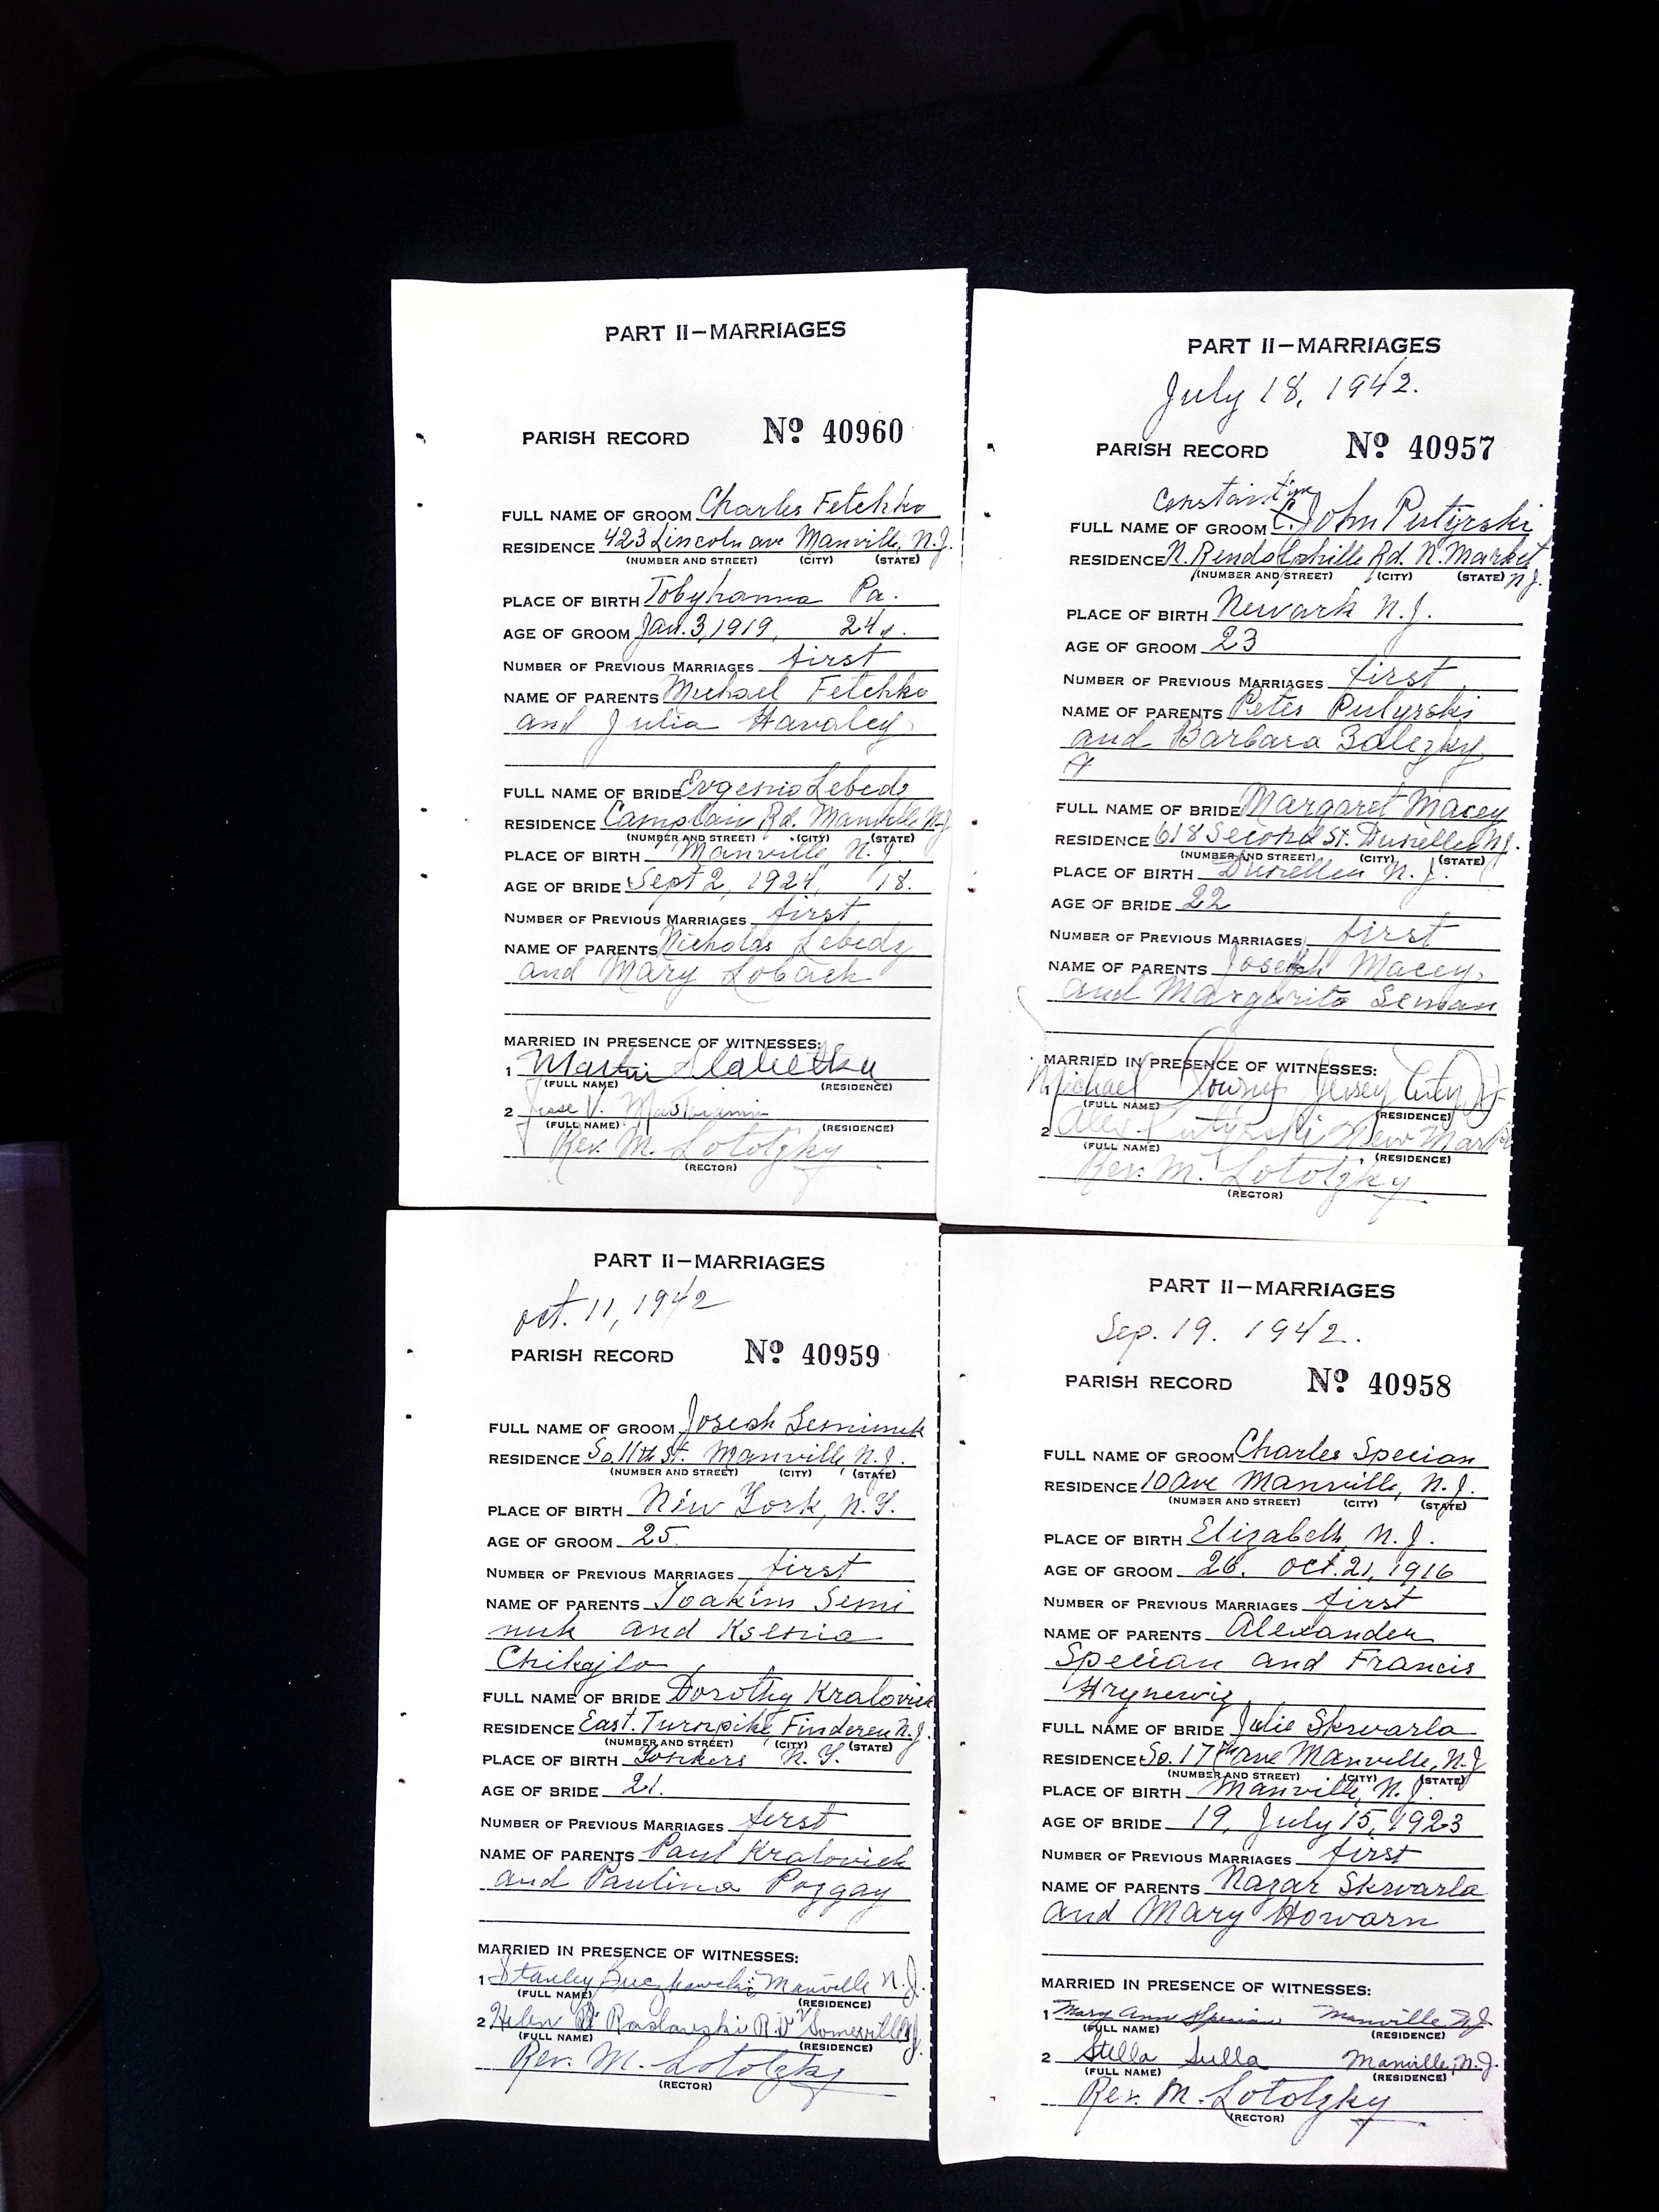 PART II—MARRIAGES
PARISH RECORD Nº 40960
FULL NAME OF GROOM Charles Fetchko
RESIDENCE 423 Lincoln ave Manville, N.J.
(NUMBER AND STREET) (CITY) (STATE)
PLACE OF BIRTH Tobyhanna Pa.
AGE OF GROOM Jan. 3, 1919, 24
NUMBER OF PREVIOUS MARRIAGES first
NAME OF PARENTS Michael Fetchko
and Julia Havaley
FULL NAME OF BRIDE Evgenia Lebedz
RESIDENCE Camplain Rd. Manville N.J.
(NUMBER AND STREET) (CITY) (STATE)
PLACE OF BIRTH Manville, N.J.
AGE OF BRIDE Sept 2, 1924, 18.
NUMBER OF PREVIOUS MARRIAGES first
NAME OF PARENTS Nicholas Lebedz
and Mary Loback
MARRIED IN PRESENCE OF WITNESSES:
1 Martin
(FULL NAME) (RESIDENCE)
2 Jesse V.
(FULL NAME) (RESIDENCE)
Rev. M. Lototzky
(RECTOR)
PART II—MARRIAGES
July 18, 1942.
PARISH RECORD Nº 40957
Constantine
FULL NAME OF GROOM C. John Putyrski
RESIDENCE N. Rendolphille Rd. N. Market
(NUMBER AND STREET) (CITY) (STATE) N.J.
PLACE OF BIRTH Newark N.J.
AGE OF GROOM 23
NUMBER OF PREVIOUS MARRIAGES first
NAME OF PARENTS Peter Putyrski
and Barbara Zalezky
FULL NAME OF BRIDE Margaret Macey
RESIDENCE 618 Second St. Dunellen N.J.
(NUMBER AND STREET) (CITY) (STATE)
PLACE OF BIRTH Dunellen N.J.
AGE OF BRIDE 22
NUMBER OF PREVIOUS MARRIAGES first
NAME OF PARENTS Joseph Macey,
and Margarita Seman
MARRIED IN PRESENCE OF WITNESSES:
1 Michael Jersey City
(FULL NAME) (RESIDENCE)
2 Alex Putyrski New Market
(FULL NAME) (RESIDENCE)
Rev. M. Lototzky
(RECTOR)
PART II—MARRIAGES
oct. 11, 1942
PARISH RECORD Nº 40959
FULL NAME OF GROOM Joseph Seminuk
RESIDENCE So. 11th St. Manville, N.J.
(NUMBER AND STREET) (CITY) (STATE)
PLACE OF BIRTH New York, N.Y.
AGE OF GROOM 25.
NUMBER OF PREVIOUS MARRIAGES first
NAME OF PARENTS Joakim Semi
nuk and Ksenia
Chikajlo
FULL NAME OF BRIDE Dorothy Kralovich
RESIDENCE East. Turnpike, Finderen N.J.
(NUMBER AND STREET) (CITY) (STATE)
PLACE OF BIRTH Yonkers N.Y.
AGE OF BRIDE 21.
NUMBER OF PREVIOUS MARRIAGES first
NAME OF PARENTS Paul Kralovich
and Paulina Poggay
MARRIED IN PRESENCE OF WITNESSES:
1 Stanley Manville N.J.
(FULL NAME) (RESIDENCE)
2 Helen Somerville N.J.
(FULL NAME) (RESIDENCE)
Rev. M. Lototzky
(RECTOR)
PART II—MARRIAGES
Sep. 19. 1942.
PARISH RECORD Nº 40958
FULL NAME OF GROOM Charles Specian
RESIDENCE 10 ave Manville, N.J.
(NUMBER AND STREET) (CITY) (STATE)
PLACE OF BIRTH Elizabeth, N.J.
AGE OF GROOM 26. oct. 21, 1916
NUMBER OF PREVIOUS MARRIAGES first
NAME OF PARENTS Alexander
Specian and Francis
Hrynewig
FULL NAME OF BRIDE Julie Skwarla
RESIDENCE So. 17th ave Manville, N.J.
(NUMBER AND STREET) (CITY) (STATE)
PLACE OF BIRTH Manville, N.J.
AGE OF BRIDE 19, July 15, 1923
NUMBER OF PREVIOUS MARRIAGES first
NAME OF PARENTS Nazar Skwarla
and Mary Howarn
MARRIED IN PRESENCE OF WITNESSES:
1 Mary Ann Specian Manville N.J.
(FULL NAME) (RESIDENCE)
2 Stella Sulla Manville, N.J.
(FULL NAME) (RESIDENCE)
Rev. M. Lototzky
(RECTOR)